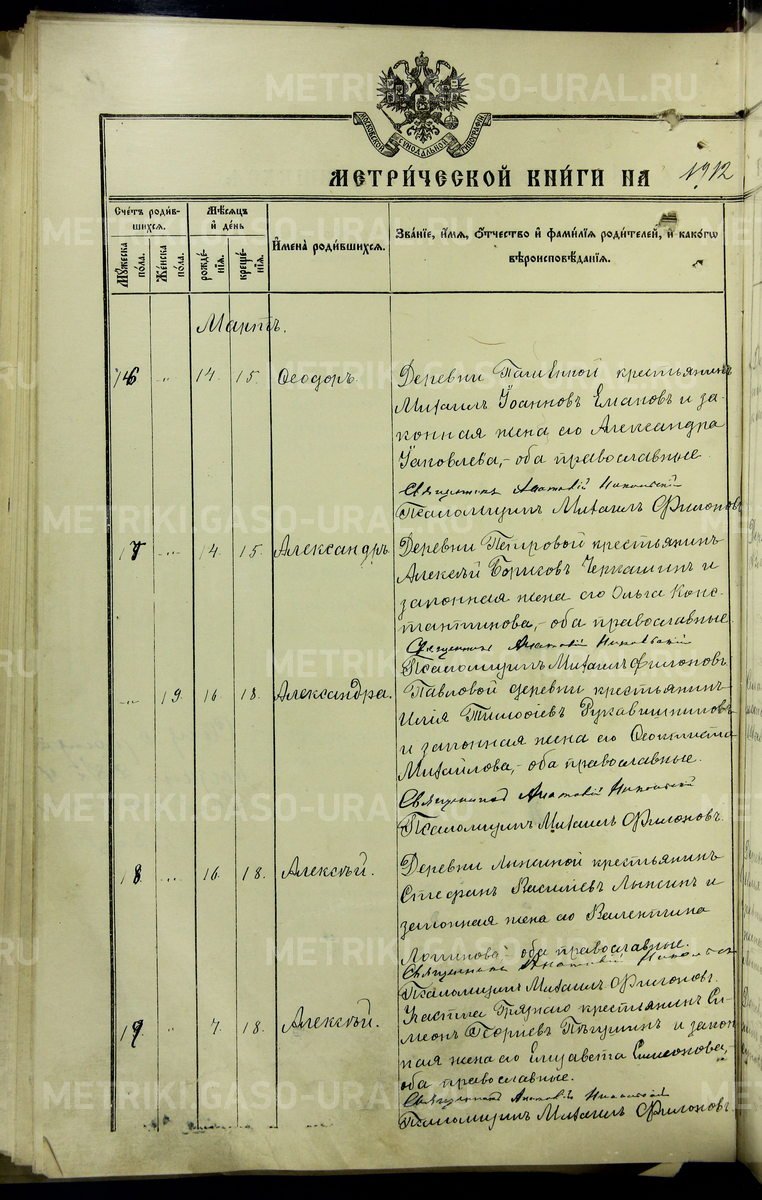 МОСКОВСКОЙ СѴНОДАЛЬНОЙ ТИПОГРАФІИ
МЕТРИ́ЧЕСКОЙ КНИ́ГИ НА 1912
Сче́тъ роди́в-
шихся.
Мꙋ́жеска
по́ла.
Же́нска
по́ла.
Мѣ́сяцъ
и҆ де́нь
рожде́-
нія.
креще́-
нія.
И҆мена̀ роди́вшихся.
Зва́ніе, и҆́мя, ѻ҆́тчество и҆ фами́лія роди́телей, и҆ како́гѡ
вѣроисповѣ́данія.
Мартъ.
16 " 14. 15. Ѳеодоръ
Деревни крестьянинъ
Михаилъ Іоанновъ Емановъ и за-
конная жена его Александра
Іаковлева,- оба православные
Священникъ Анатолій Никольскій
Псаломщикъ Михаилъ Филоновъ
17 " 14. 15. Александръ
Деревни Петровой крестьянинъ
Алексѣй Борисовъ Черкашинъ и
законная жена его Ольга Конс-
тантинова,- оба православные.
Священникъ Анатолій Никольскій
Псаломщикъ Михаилъ Филоновъ
" 19 16. 18. Александра.
Павловой деревни крестьянинъ
Илія Тимоѳіевъ Рукавишниковъ
и законная жена его Ѳеоктиста
Михайлова,- оба православные.
Священникъ Анатолій Никольскій
Псаломщикъ Михаилъ Филоновъ.
18. " 16. 18. Алексѣй.
Деревни крестьянинъ
Стефанъ Василіевъ и
законная жена его Валентина
оба православные.
Священникъ Анатолій Никольскій
Псаломщикъ Михаилъ Филоновъ.
19. " 7. 18. Алексѣй.
Участка крестьянинъ Си-
меонъ и закон
ная жена его Елисавета Симеонова,-
оба православные.
Священникъ Анатолій Никольскій
Псаломщикъ Михаилъ Филоновъ.
METRIKI.GASO-URAL.RU